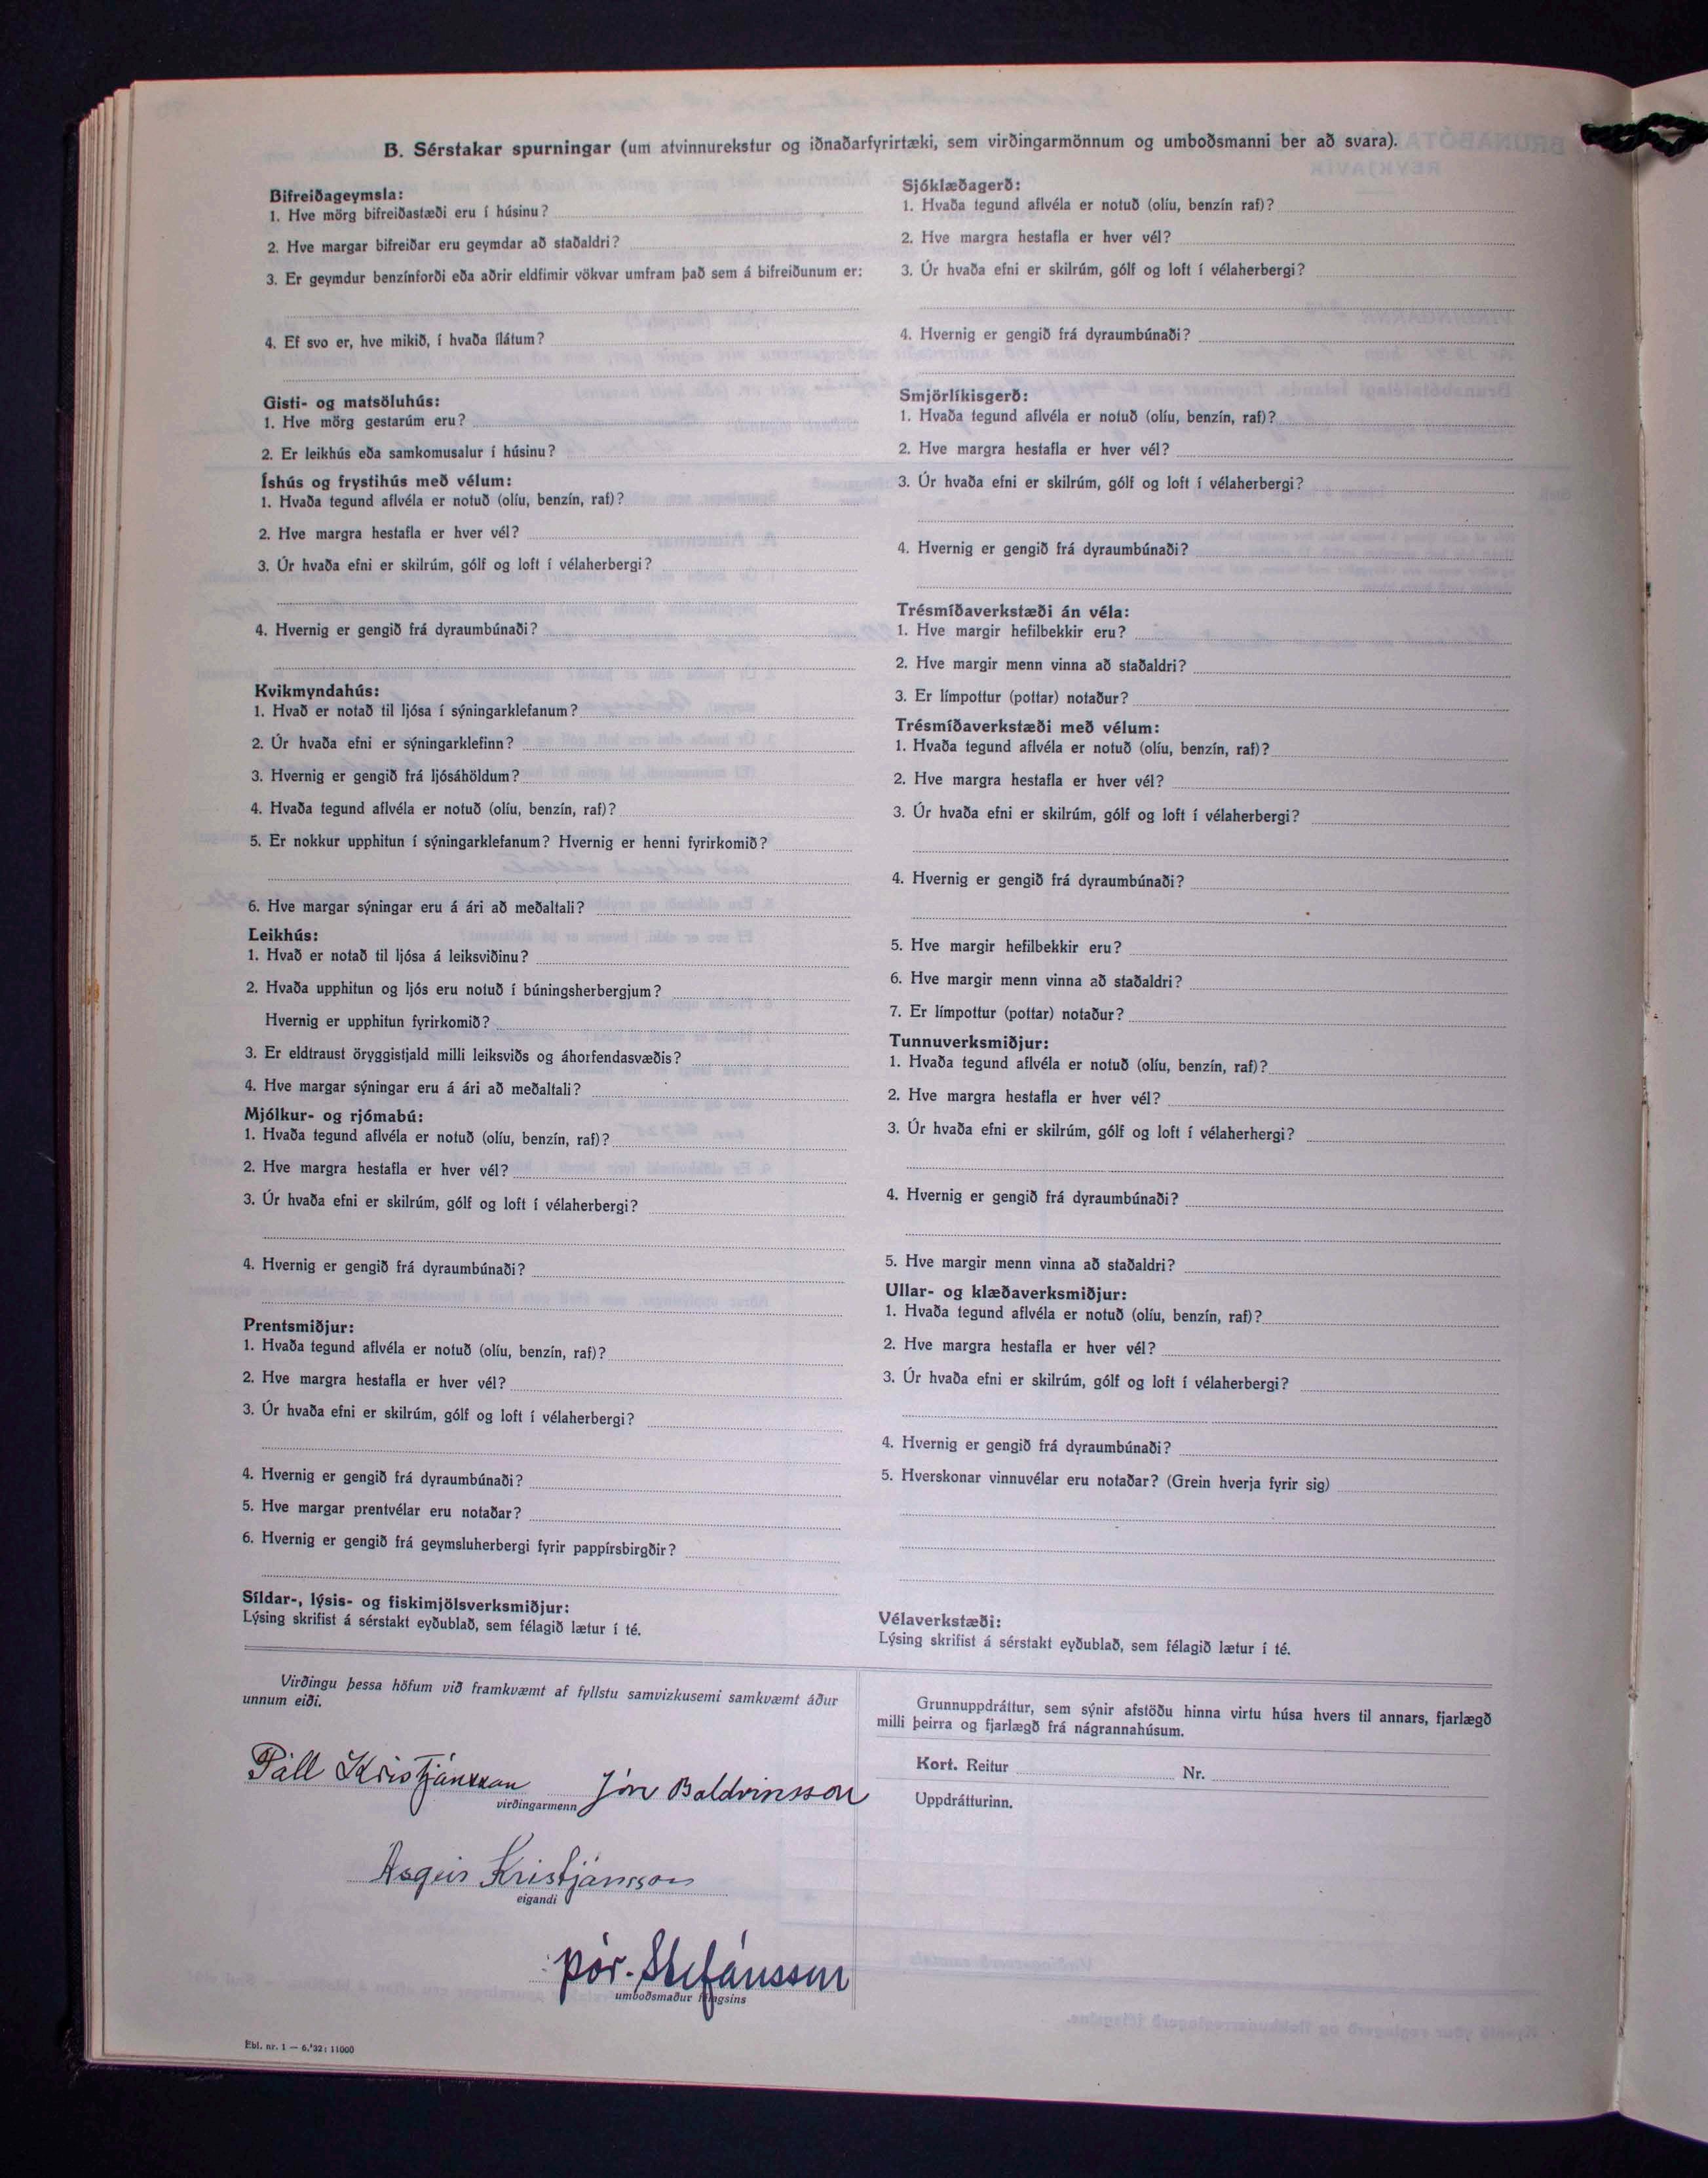 B. Sérstakar spurningar (um atvinnurekstur og iðnaðarfyrirtæki, sem virðingarmönnum og umboðsmanni ber að svara).
Bifreiðageymsla:
1. Hve mörg bifreiðastæði eru í húsinu?
2. Hve margar bifreiðar eru geymdar að staðaldri?
3. Er geymdur benzínforði eða aðrir eldfimir vökvar umfram það sem á bifreiðunum er:
4. Ef svo er, hve mikið, í hvaða ílátum?
Gisti- og matsöluhús:
1. Hve mörg gestarúm eru?
2. Er leikhús eða samkomusalur í húsinu?
Íshús og frystihús með vélum:
1. Hvaða tegund aflvéla er notuð (olíu, benzín, raf)?
2. Hve margra hestafla er hver vél?
3. Úr hvaða efni er skilrúm, gólf og loft í vélaherbergi?
4. Hvernig er gengið frá dyraumbúnaði?
Kvikmyndahús:
1. Hvað er notað til ljósa í sýningarklefanum?
2. Úr hvaða efni er sýningarklefinn?
3. Hvernig er gengið frá ljósáhöldum?
4. Hvaða tegund aflvéla er notuð (olíu, benzín, raf)?
5. Er nokkur upphitun í sýningarklefanum? Hvernig er henni fyrirkomið?
6. Hve margar sýningar eru á ári að meðaltali?
Leikhús:
1. Hvað er notað til ljósa á leiksviðinu?
2. Hvaða upphitun og ljós eru notuð í búningsherbergjum?
Hvernig er upphitun fyrirkomið?
3. Er eldtraust öryggistjald milli leiksviðs og áhorfendasvæðis?
4. Hve margar sýningar eru á ári að meðaltali?
Mjólkur- og rjómabú:
1. Hvaða tegund aflvéla er notuð (olíu, benzín, raf)?
2. Hve margra hestafla er hver vél?
3. Úr hvaða efni er skilrúm, gólf og loft í vélaherbergi?
4. Hvernig er gengið frá dyraumbúnaði?
Prentsmiðjur:
1. Hvaða tegund aflvéla er notuð (olíu, benzín, raf)?
2. Hve margra hestafla er hver vél?
3. Úr hvaða efni er skilrúm, gólf og loft í vélaherbergi?
4. Hvernig er gengið frá dyraumbúnaði?
5. Hve margar prentvélar eru notaðar?
6. Hvernig er gengið frá geymsluherbergi fyrir pappírsbirgðir?
Síldar-, lýsis- og fiskimjölsverksmiðjur:
Lýsing skrifist á sérstakt eyðublað, sem félagið lætur í té.
Sjóklæðagerð:
1. Hvaða tegund aflvéla er notuð (olíu, benzín raf)?
2. Hve margra hestafla er hver vél?
3. Úr hvaða efni er skilrúm, gólf og loft í vélaherbergi?
4. Hvernig er gengið frá dyraumbúnaði?
Smjörlíkisgerð:
1. Hvaða tegund aflvéla er notuð (olíu, benzín, raf)?
2. Hve margra hestafla er hver vél?
3. Úr hvaða efni er skilrúm, gólf og loft í vélaherbergi?
4. Hvernig er gengið frá dyraumbúnaði?
Trésmíðaverkstæði án véla:
1. Hve margir hefilbekkir eru?
2. Hve margir menn vinna að staðaldri?
3. Er límpottur (pottar) notaður?
Trésmíðaverkstæði með vélum:
1. Hvaða tegund aflvéla er notuð (olíu, benzín, raf)?
2. Hve margra hestafla er hver vél?
3. Úr hvaða efni er skilrúm, gólf og loft í vélaherbergi?
4. Hvernig er gengið frá dyraumbúnaði?
5. Hve margir hefilbekkir eru?
6. Hve margir menn vinna að staðaldri?
7. Er límpottur (pottar) notaður?
Tunnuverksmiðjur:
1. Hvaða tegund aflvéla er notuð (olíu, benzín, raf)?
2. Hve margra hestafla er hver vél?
3. Úr hvaða efni er skilrúm, gólf og loft í vélaherhergi?
4. Hvernig er gengið frá dyraumbúnaði?
5. Hve margir menn vinna að staðaldri?
Ullar- og klæðaverksmiðjur:
1. Hvaða tegund aflvéla er notuð (olíu, benzín, raf)?
2. Hve margra hestafla er hver vél?
3. Úr hvaða efni er skilrúm, gólf og loft í vélaherbergi?
4. Hvernig er gengið frá dyraumbúnaði?
5. Hverskonar vinnuvélar eru notaðar? (Grein hverja fyrir sig)
Vélaverkstæði:
Lýsing skrifist á sérstakt eyðublað, sem félagið lætur í té.
Virðingu þessa höfum við framkvæmt af fyllstu samvizkusemi samkvæmt áður
unnum eiði.
Páll Kristjánsson Jón Baldvinsson
virðingarmenn
Ásgeir Kristjánsson
eigandi
Þór. Stefánsson
umboðsmaður félagsins
Ebl. nr. 1 — 6.'32: 11000
Grunnuppdráttur, sem sýnir afstöðu hinna virtu húsa hvers til annars, fjarlægð
milli þeirra og fjarlægð frá nágrannahúsum.
Kort. Reitur Nr.
Uppdrátturinn.